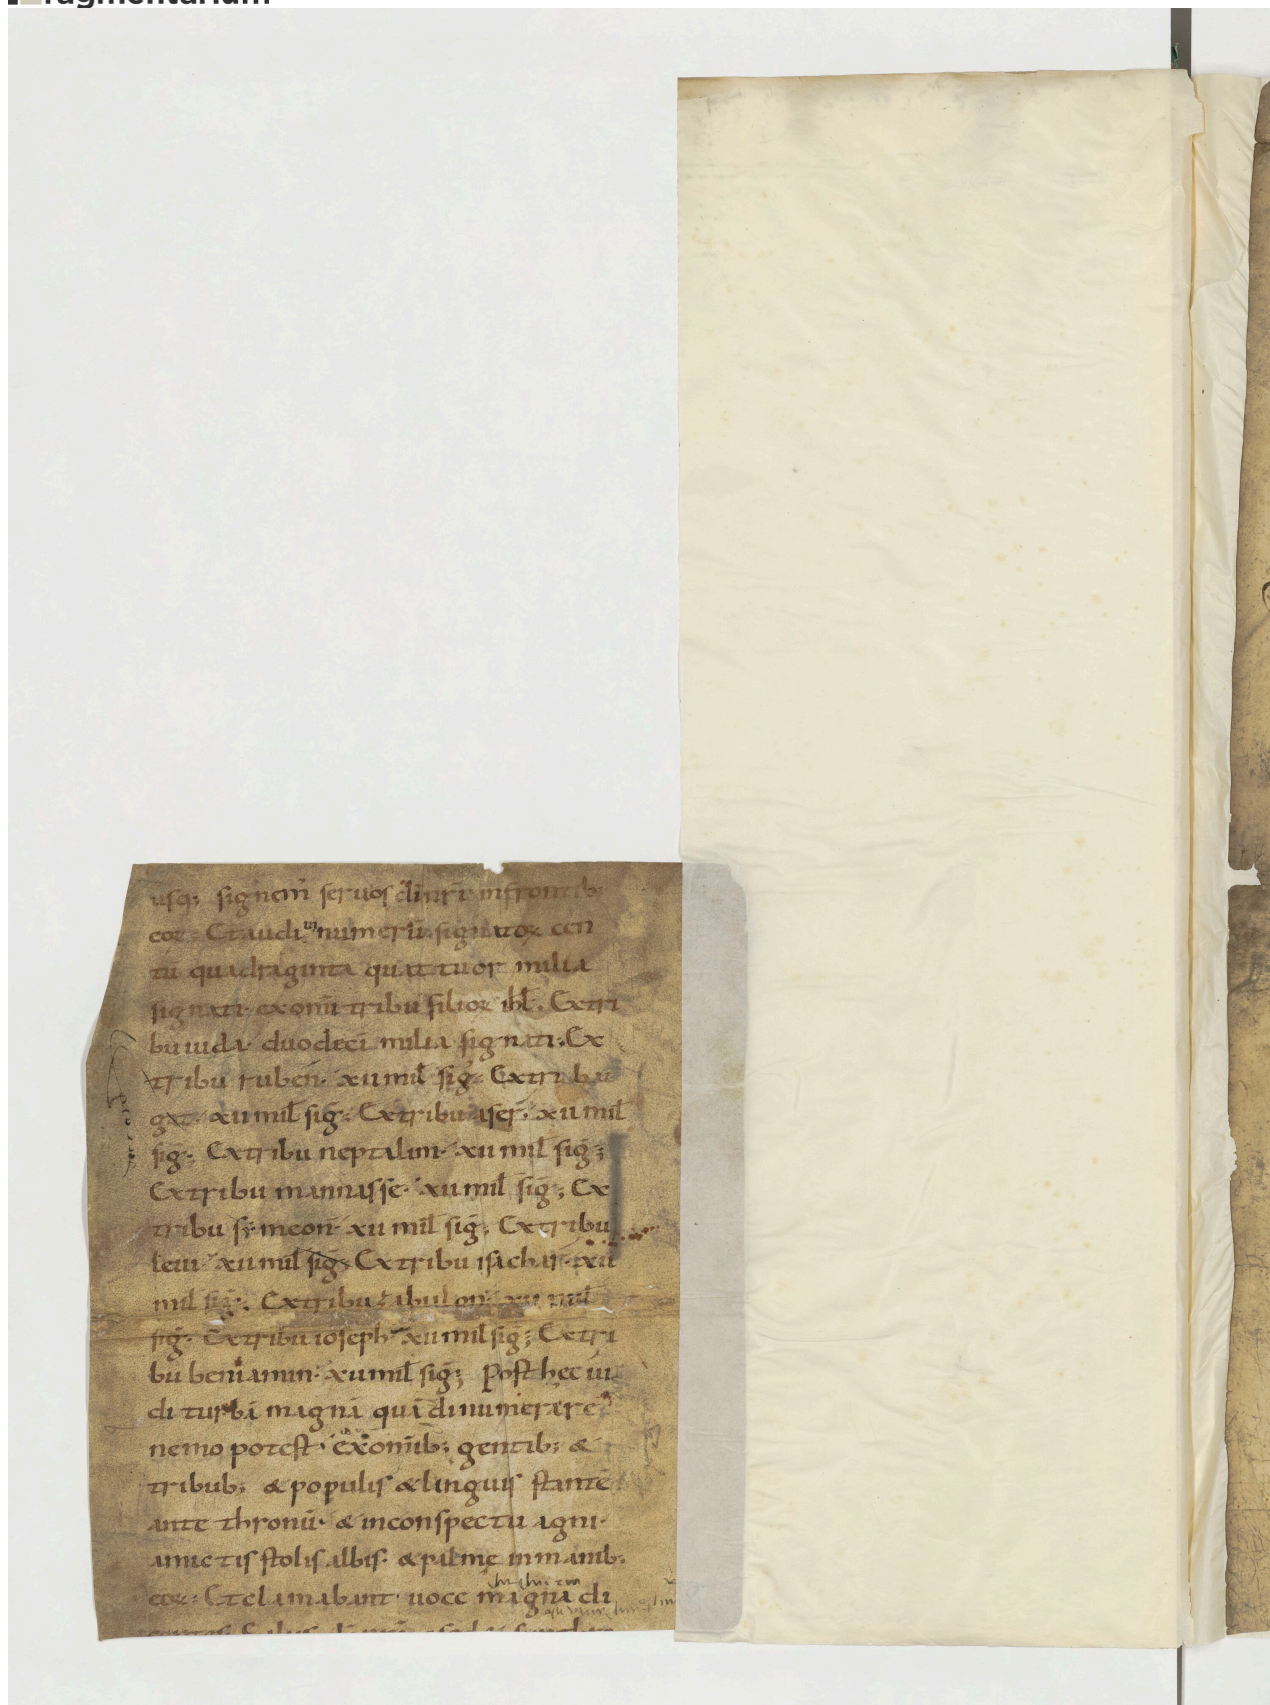 ragmentarium
usq; signem̄ seruos dī nr̄i infrontib;
eoꝝ. Et audiui numerū signatoꝝ cen
tū quadraginta quattuor milia
signati exomī tribu filioꝝ ihl̄. Extri
bu iuda duodecī milia signati. Ex
tribu ruben. xii mil̄ siḡ. Extribu
gat. xii mil̄ siḡ. Extribu aser. xii mil̄
siḡ. Extribu neptalim. xii mil̄ siḡ;
Extribu mannasse. xii mil̄ siḡ; Ex
tribu symeon xii mil̄ siḡ. Extribu
leui. xii mil̄ siḡ. Extribu isachar. xii
mil̄ siḡ. Extribu zabulon. xii mil̄
siḡ. Extribu ioseph xii mil̄ siḡ; Extri
bu beniamin. xii mil̄ siḡ; Post hec ui
di turbā magnā quā dinumerare
nemo potest. exomīb; gentib; &
tribub; & populis & linguis stantē
ante thronū. & inconspectu agni.
amictis stolis albis. & palme inmanib;
eoꝝ. Et clamabant uoce magna di